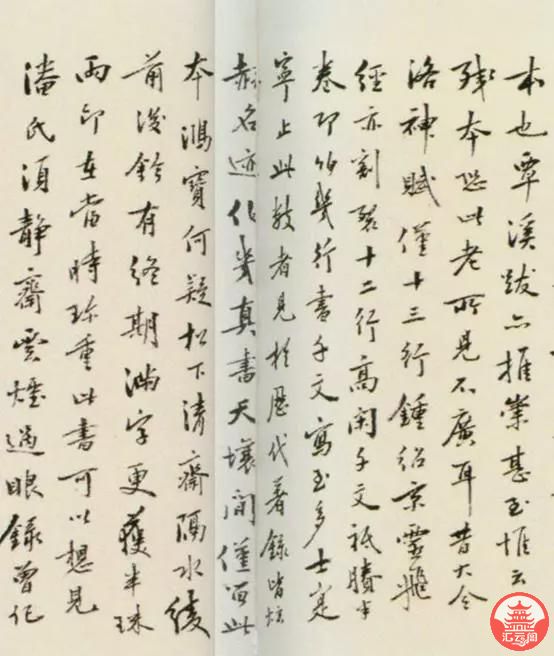 本也覃溪跋亦推崇甚至惟云
殘本恐此老所見不廣耳昔大令
洛神賦僅十三行鍾紹京靈飛
經亦割裂十二行高閑千文祇賸半
卷即伯幾行書千文寫至多士寔
寧止此數者見於歷代著錄皆炫
赫名迹伯幾真書天壤間僅留此
本鴻寶何疑松下清齋隔水綾
前後鈐有終期滿字更獲半珠
兩印在當時珍重此書可以想見
潘氏須靜齋雲煙過眼錄曾
汇云阁